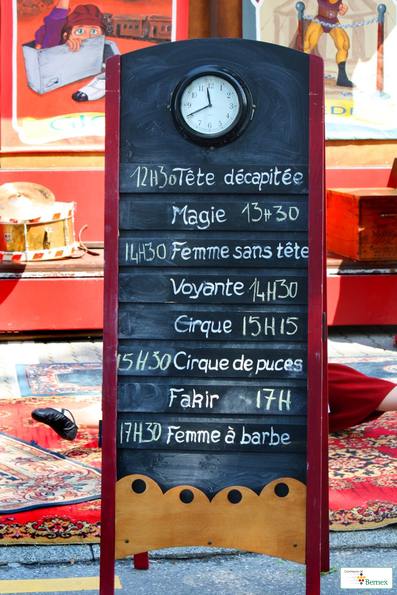 12H30 Tête décapitée
Magie 13H30
14H30 Femme sans tête
Voyante 14H30
Cirque 15H15
15H30 Cirque de puces
Fakir 17H
17H30 Femme à barbe
Bernex